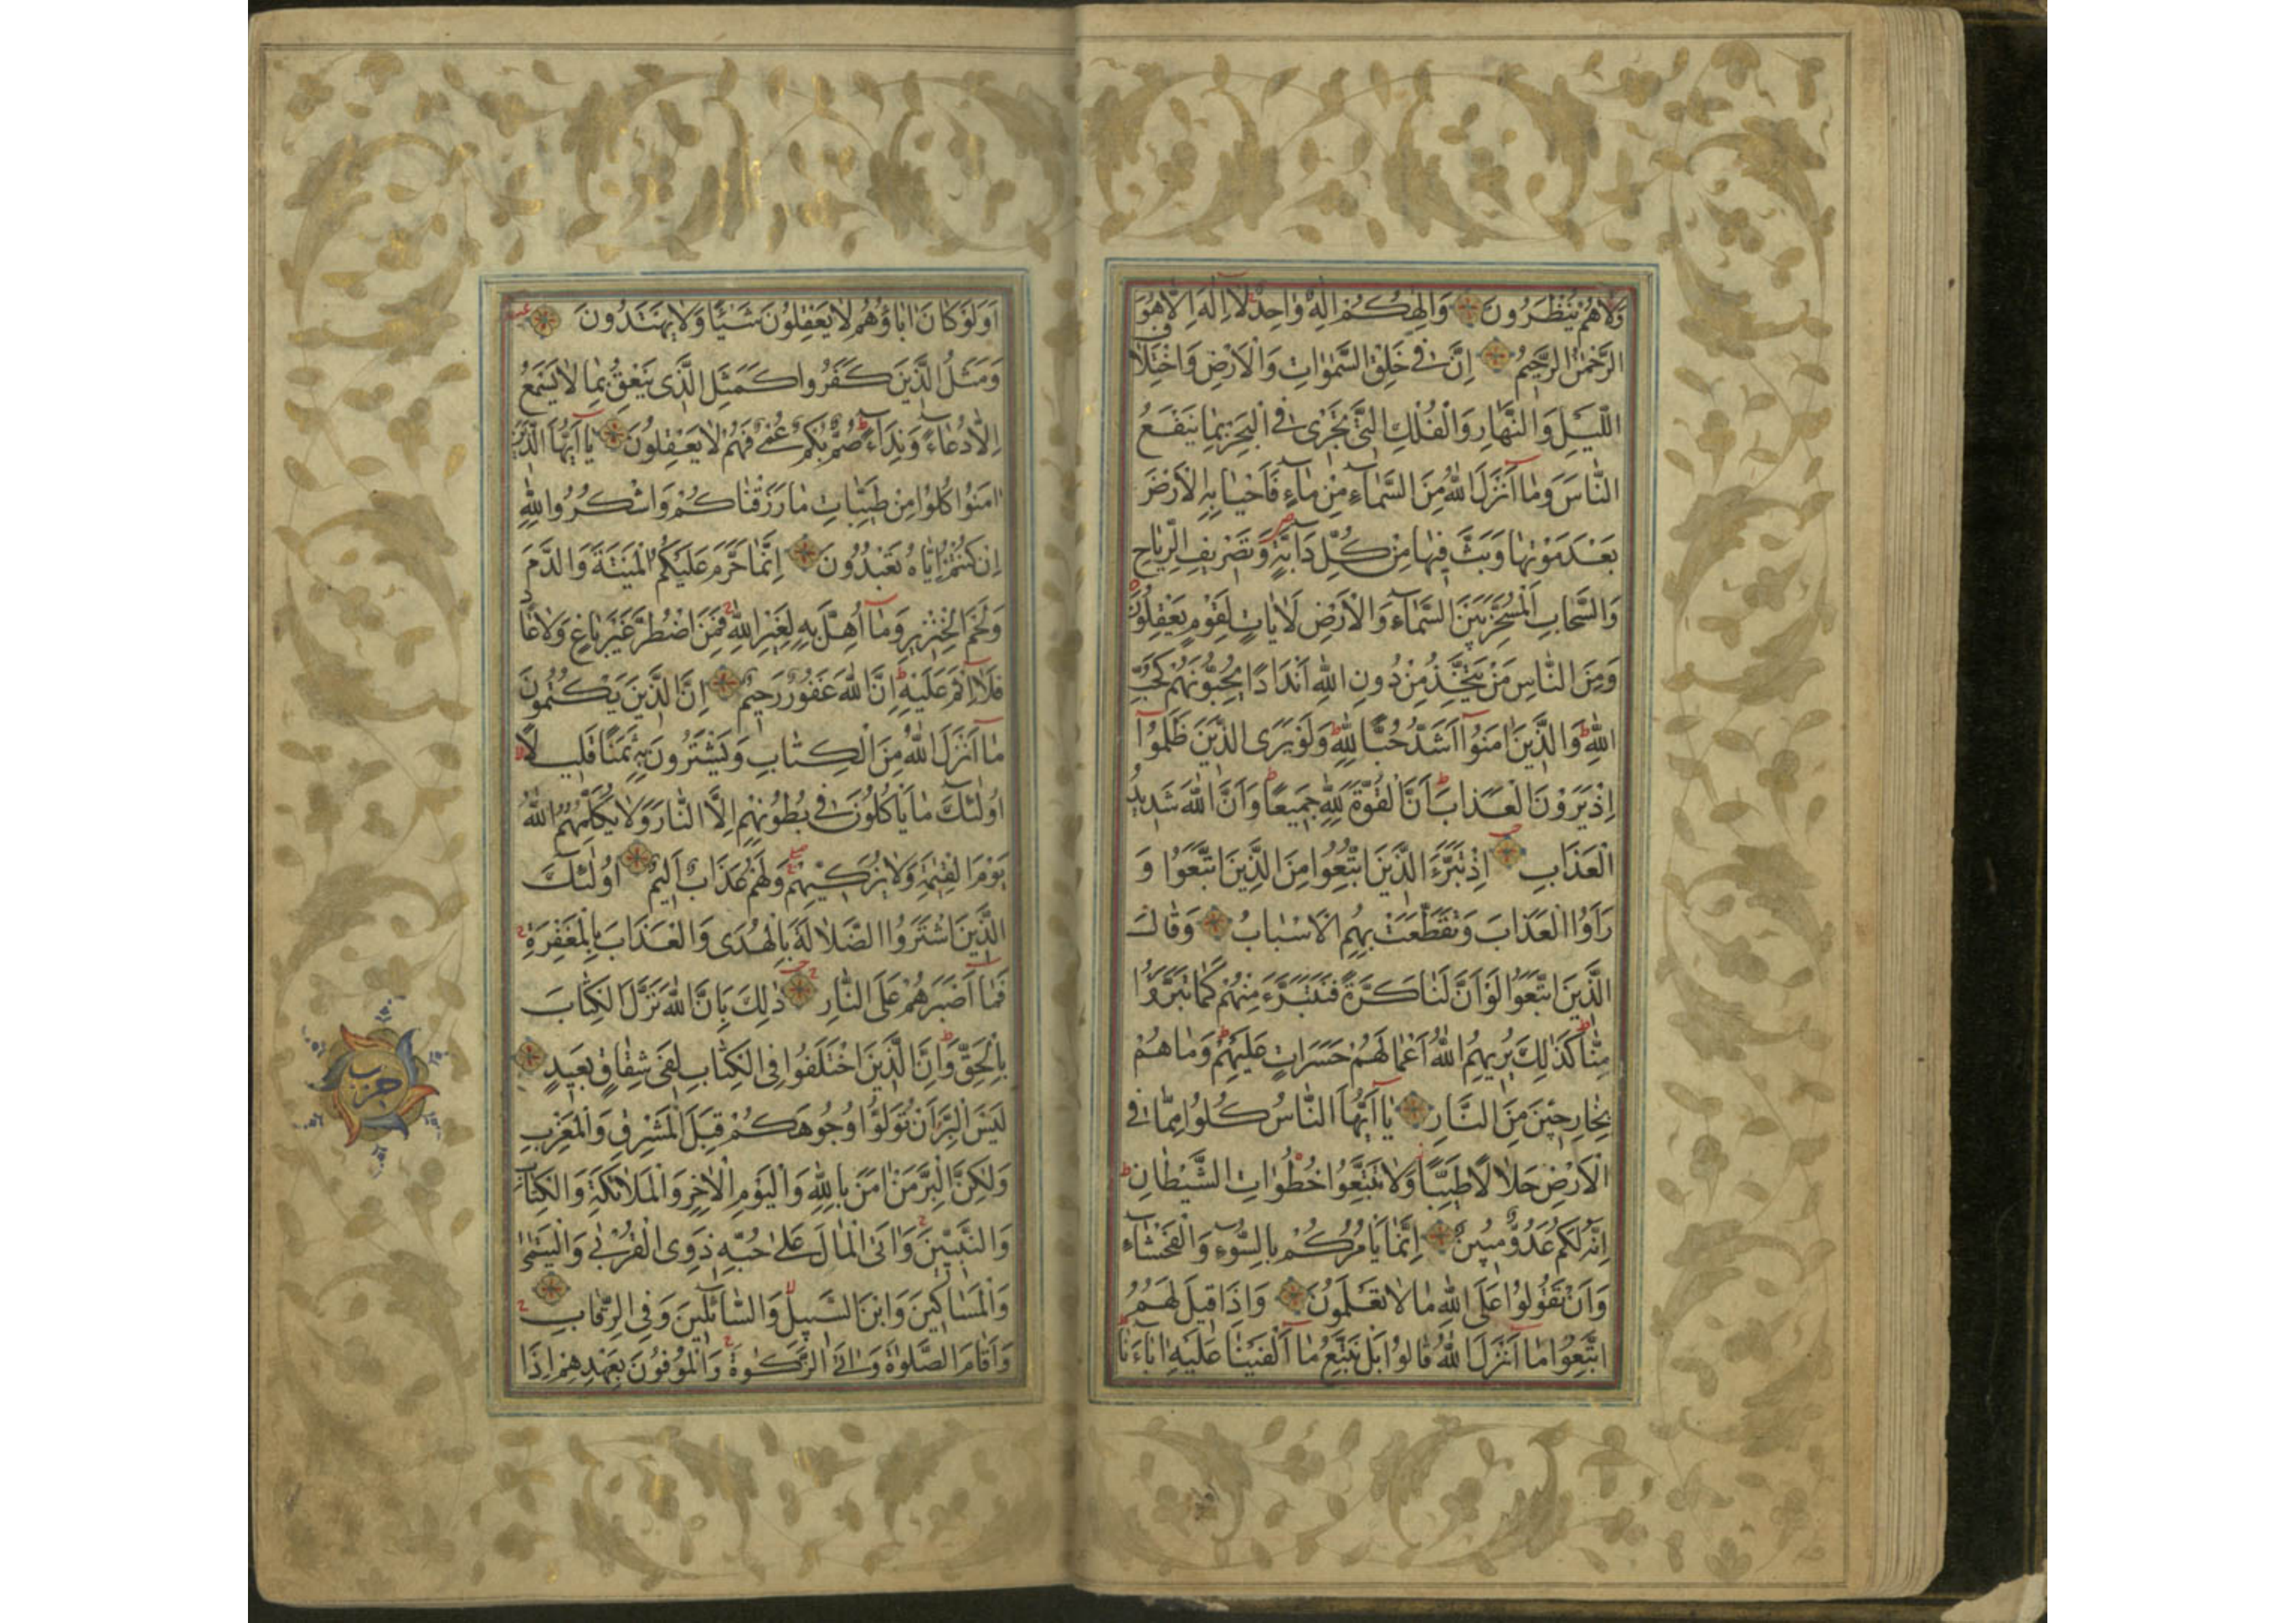 وَلَاهُمْ يُنْظَرُونَ وَاِلٰهُكُمْ اِلٰهٌ وَاحِدٌ لَا اِلٰهَ اِلَّا هُوَ
الرَّحْمٰنُ الرَّحِيمُ اِنَّ فِي خَلْقِ السَّمٰوَاتِ وَالْاَرْضِ وَاخْتِلَافِ
اللَّيْلِ وَالنَّهَارِ وَالْفُلْكِ الَّتِي تَجْرِي فِي الْبَحْرِ بِمَا يَنْفَعُ
النَّاسَ وَمَا اَنْزَلَ اللّٰهُ مِنَ السَّمَآءِ مِنْ مَآءٍ فَاَحْيَا بِهِ الْاَرْضَ
بَعْدَ مَوْتِهَا وَبَثَّ فِيهَا مِنْ كُلِّ دَآبَّةٍ وَتَصْرِيفِ الرِّيَاحِ
وَالسَّحَابِ الْمُسَخَّرِ بَيْنَ السَّمَآءِ وَالْاَرْضِ لَاٰيَاتٍ لِقَوْمٍ يَعْقِلُونَ
وَمِنَ النَّاسِ مَنْ يَتَّخِذُ مِنْ دُونِ اللّٰهِ اَنْدَادًا يُحِبُّونَهُمْ كَحُبِّ
اللّٰهِ وَالَّذِينَ اٰمَنُوا اَشَدُّ حُبًّا لِلّٰهِ وَلَوْ يَرَى الَّذِينَ ظَلَمُوا
اِذْ يَرَوْنَ الْعَذَابَ اَنَّ الْقُوَّةَ لِلّٰهِ جَمِيعًا وَاَنَّ اللّٰهَ شَدِيدُ
الْعَذَابِ اِذْ تَبَرَّءَ الَّذِينَ اتُّبِعُوا مِنَ الَّذِينَ اتَّبَعُوا وَ
رَاَوُا الْعَذَابَ وَتَقَطَّعَتْ بِهِمُ الْاَسْبَابُ وَقَالَ
الَّذِينَ اتَّبَعُوا لَوْ اَنَّ لَنَا كَرَّةً فَنَتَبَرَّءَ مِنْهُمْ كَمَا تَبَرَّؤُا
مِنَّا كَذٰلِكَ يُرِيهِمُ اللّٰهُ اَعْمَالَهُمْ حَسَرَاتٍ عَلَيْهِمْ وَمَا هُمْ
بِخَارِجِينَ مِنَ النَّارِ يَا اَيُّهَا النَّاسُ كُلُوا مِمَّا فِي
الْاَرْضِ حَلَالًا طَيِّبًا وَلَا تَتَّبِعُوا خُطُوَاتِ الشَّيْطَانِ
اِنَّهُ لَكُمْ عَدُوٌّ مُبِينٌ اِنَّمَا يَاْمُرُكُمْ بِالسُّوٓءِ وَالْفَحْشَآءِ
وَاَنْ تَقُولُوا عَلَى اللّٰهِ مَا لَا تَعْلَمُونَ وَاِذَا قِيلَ لَهُمُ
اتَّبِعُوا مَا اَنْزَلَ اللّٰهُ قَالُوا بَلْ نَتَّبِعُ مَا اَلْفَيْنَا عَلَيْهِ اٰبَاءَنَا
اَوَلَوْ كَانَ اٰبَاؤُهُمْ لَا يَعْقِلُونَ شَيْئًا وَلَا يَهْتَدُونَ
وَمَثَلُ الَّذِينَ كَفَرُوا كَمَثَلِ الَّذِي يَنْعِقُ بِمَا لَا يَسْمَعُ
اِلَّا دُعَاءً وَنِدَآءً صُمٌّ بُكْمٌ عُمْيٌ فَهُمْ لَا يَعْقِلُونَ يَا اَيُّهَا الَّذِينَ
اٰمَنُوا كُلُوا مِنْ طَيِّبَاتِ مَا رَزَقْنَاكُمْ وَاشْكُرُوا لِلّٰهِ
اِنْ كُنْتُمْ اِيَّاهُ تَعْبُدُونَ اِنَّمَا حَرَّمَ عَلَيْكُمُ الْمَيْتَةَ وَالدَّمَ
وَلَحْمَ الْخِنْزِيرِ وَمَا اُهِلَّ بِهِ لِغَيْرِ اللّٰهِ فَمَنِ اضْطُرَّ غَيْرَ بَاغٍ وَلَا عَادٍ
فَلَا اِثْمَ عَلَيْهِ اِنَّ اللّٰهَ غَفُورٌ رَحِيمٌ اِنَّ الَّذِينَ يَكْتُمُونَ
مَا اَنْزَلَ اللّٰهُ مِنَ الْكِتَابِ وَيَشْتَرُونَ بِهِ ثَمَنًا قَلِيلًا
اُولٰئِكَ مَا يَاْكُلُونَ فِي بُطُونِهِمْ اِلَّا النَّارَ وَلَا يُكَلِّمُهُمُ اللّٰهُ
يَوْمَ الْقِيٰمَةِ وَلَا يُزَكِّيهِمْ وَلَهُمْ عَذَابٌ اَلِيمٌ اُولٰئِكَ
الَّذِينَ اشْتَرَوُا الضَّلَالَةَ بِالْهُدَى وَالْعَذَابَ بِالْمَغْفِرَةِ
فَمَا اَصْبَرَهُمْ عَلَى النَّارِ ذٰلِكَ بِاَنَّ اللّٰهَ نَزَّلَ الْكِتَابَ
بِالْحَقِّ وَاِنَّ الَّذِينَ اخْتَلَفُوا فِي الْكِتَابِ لَفِي شِقَاقٍ بَعِيدٍ
لَيْسَ الْبِرَّ اَنْ تُوَلُّوا وُجُوهَكُمْ قِبَلَ الْمَشْرِقِ وَالْمَغْرِبِ
وَلٰكِنَّ الْبِرَّ مَنْ اٰمَنَ بِاللّٰهِ وَالْيَوْمِ الْاٰخِرِ وَالْمَلَائِكَةِ وَالْكِتَابِ
وَالنَّبِيِّينَ وَاٰتَى الْمَالَ عَلَى حُبِّهِ ذَوِي الْقُرْبٰى وَالْيَتٰمٰى
وَالْمَسَاكِينَ وَابْنَ السَّبِيلِ وَالسَّآئِلِينَ وَفِي الرِّقَابِ
وَاَقَامَ الصَّلٰوةَ وَاٰتَى الزَّكٰوةَ وَالْمُوفُونَ بِعَهْدِهِمْ اِذَا
حزب